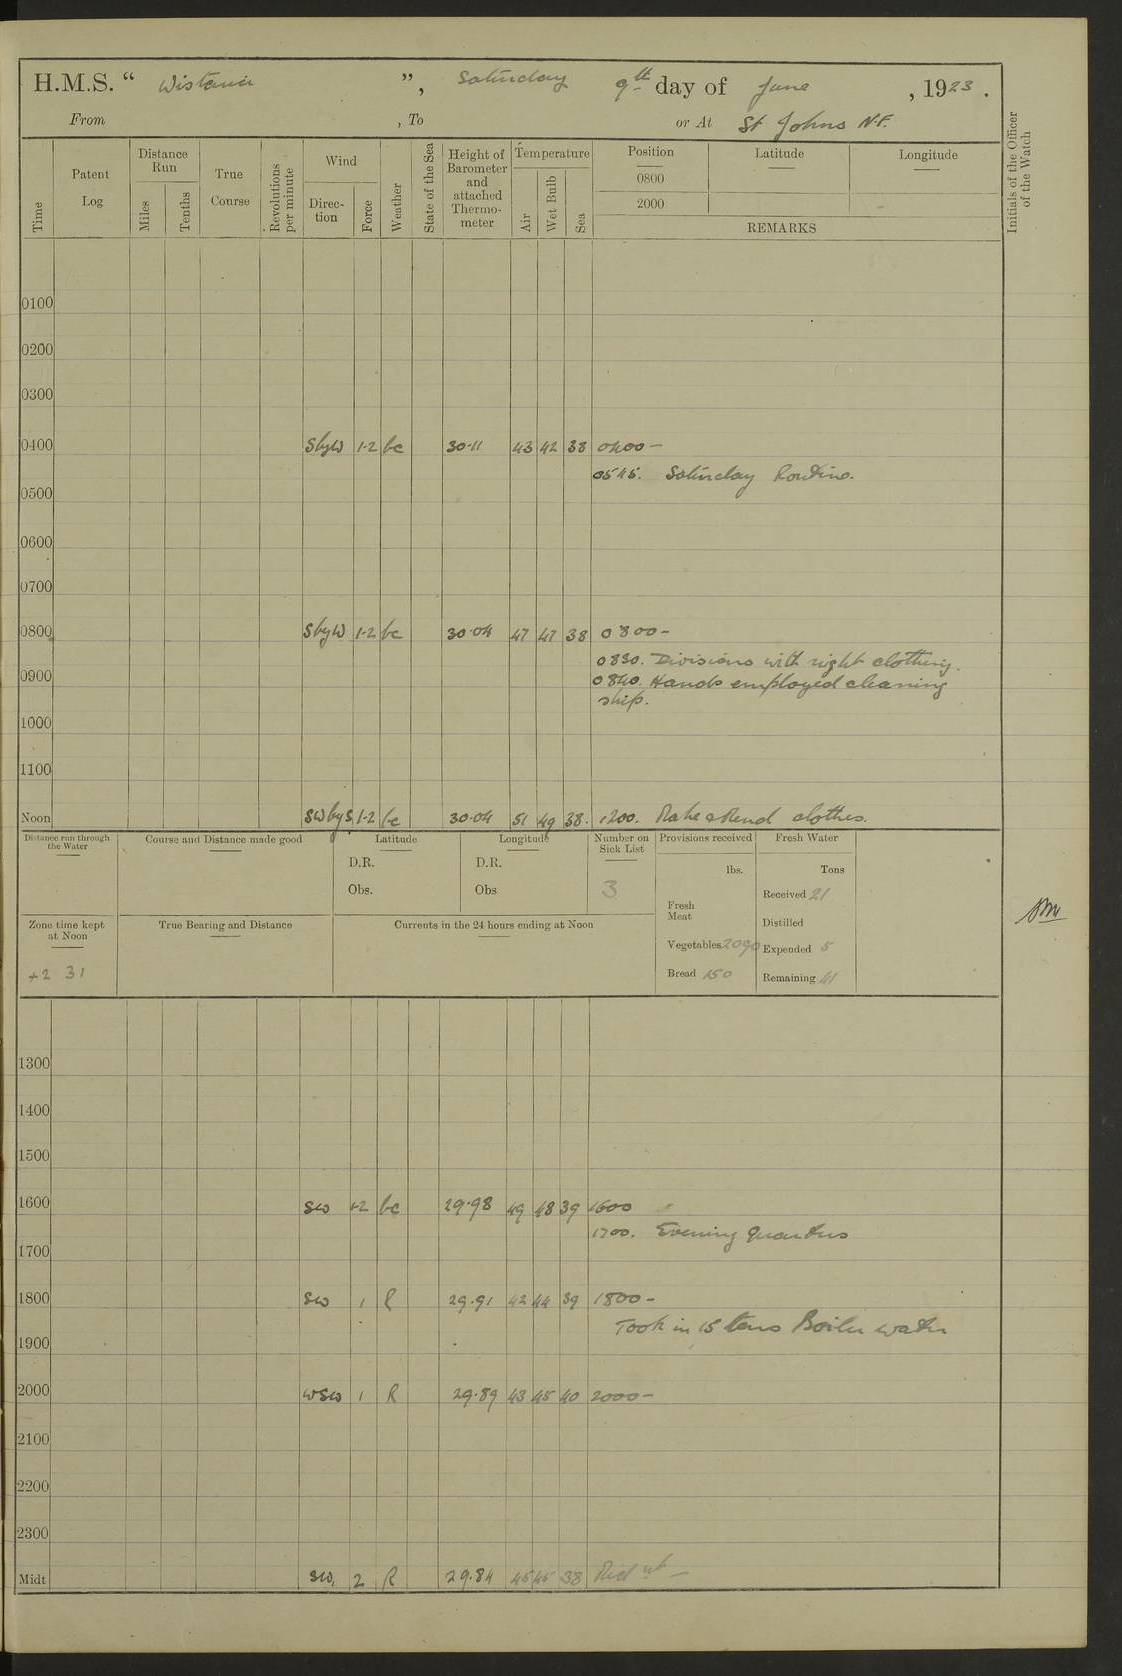 H.M.S. “ Wistaria ”, Saturday 9th day of June, 1923.
From , To or At St Johns N.F.
Time
Patent Log
Distance Run
Miles
Tenths
True Course
Revolutions per minute
Wind
Direc-tion
Force
Weather
State of the Sea
Height of Barometer and attached Thermo-meter
Temperature
Air
Wet Bulb
Sea
Position
0800
2000
Latitude
Longitude
REMARKS
Initials of the Officer of the Watch
0100
0200
0300
0400 SbyW 1-2 bc 30·11 43 42 38 0400 –
0545. Saturday Routine.
0500
0600
0700
0800 SbyW 1-2 bc 30·04 47 47 38 0800 –
0830. Divisions with night clothing.
0840. Hands employed cleaning
ship.
0900
1000
1100
Noon SWbyS 1-2 bc 30·04 51 49 38. 1200. Make & Mend clothes.
Distance run through the Water
Course and Distance made good
Latitude
D.R.
Obs.
Longitude
D.R.
Obs
Number on Sick List
3
Provisions received
lbs.
Fresh Meat
Vegetables 2090
Bread 150
Fresh Water
Tons
Received 21
Distilled
Expended 5
Remaining 41
Zone time kept at Noon
+2 31
True Bearing and Distance
Currents in the 24 hours ending at Noon
1300
1400
1500
1600 SW 1-2 bc 29·98 49 48 39 1600
1700. Evening Quarters
1700
1800 SW 1 R 29·91 42 44 39 1800 –
Took in 15 tons Boiler water
1900
2000 WSW 1 R 29·89 43 45 40 2000 –
2100
2200
2300
Midt SW. 2 R 29.84 45 45 38 Midnt –